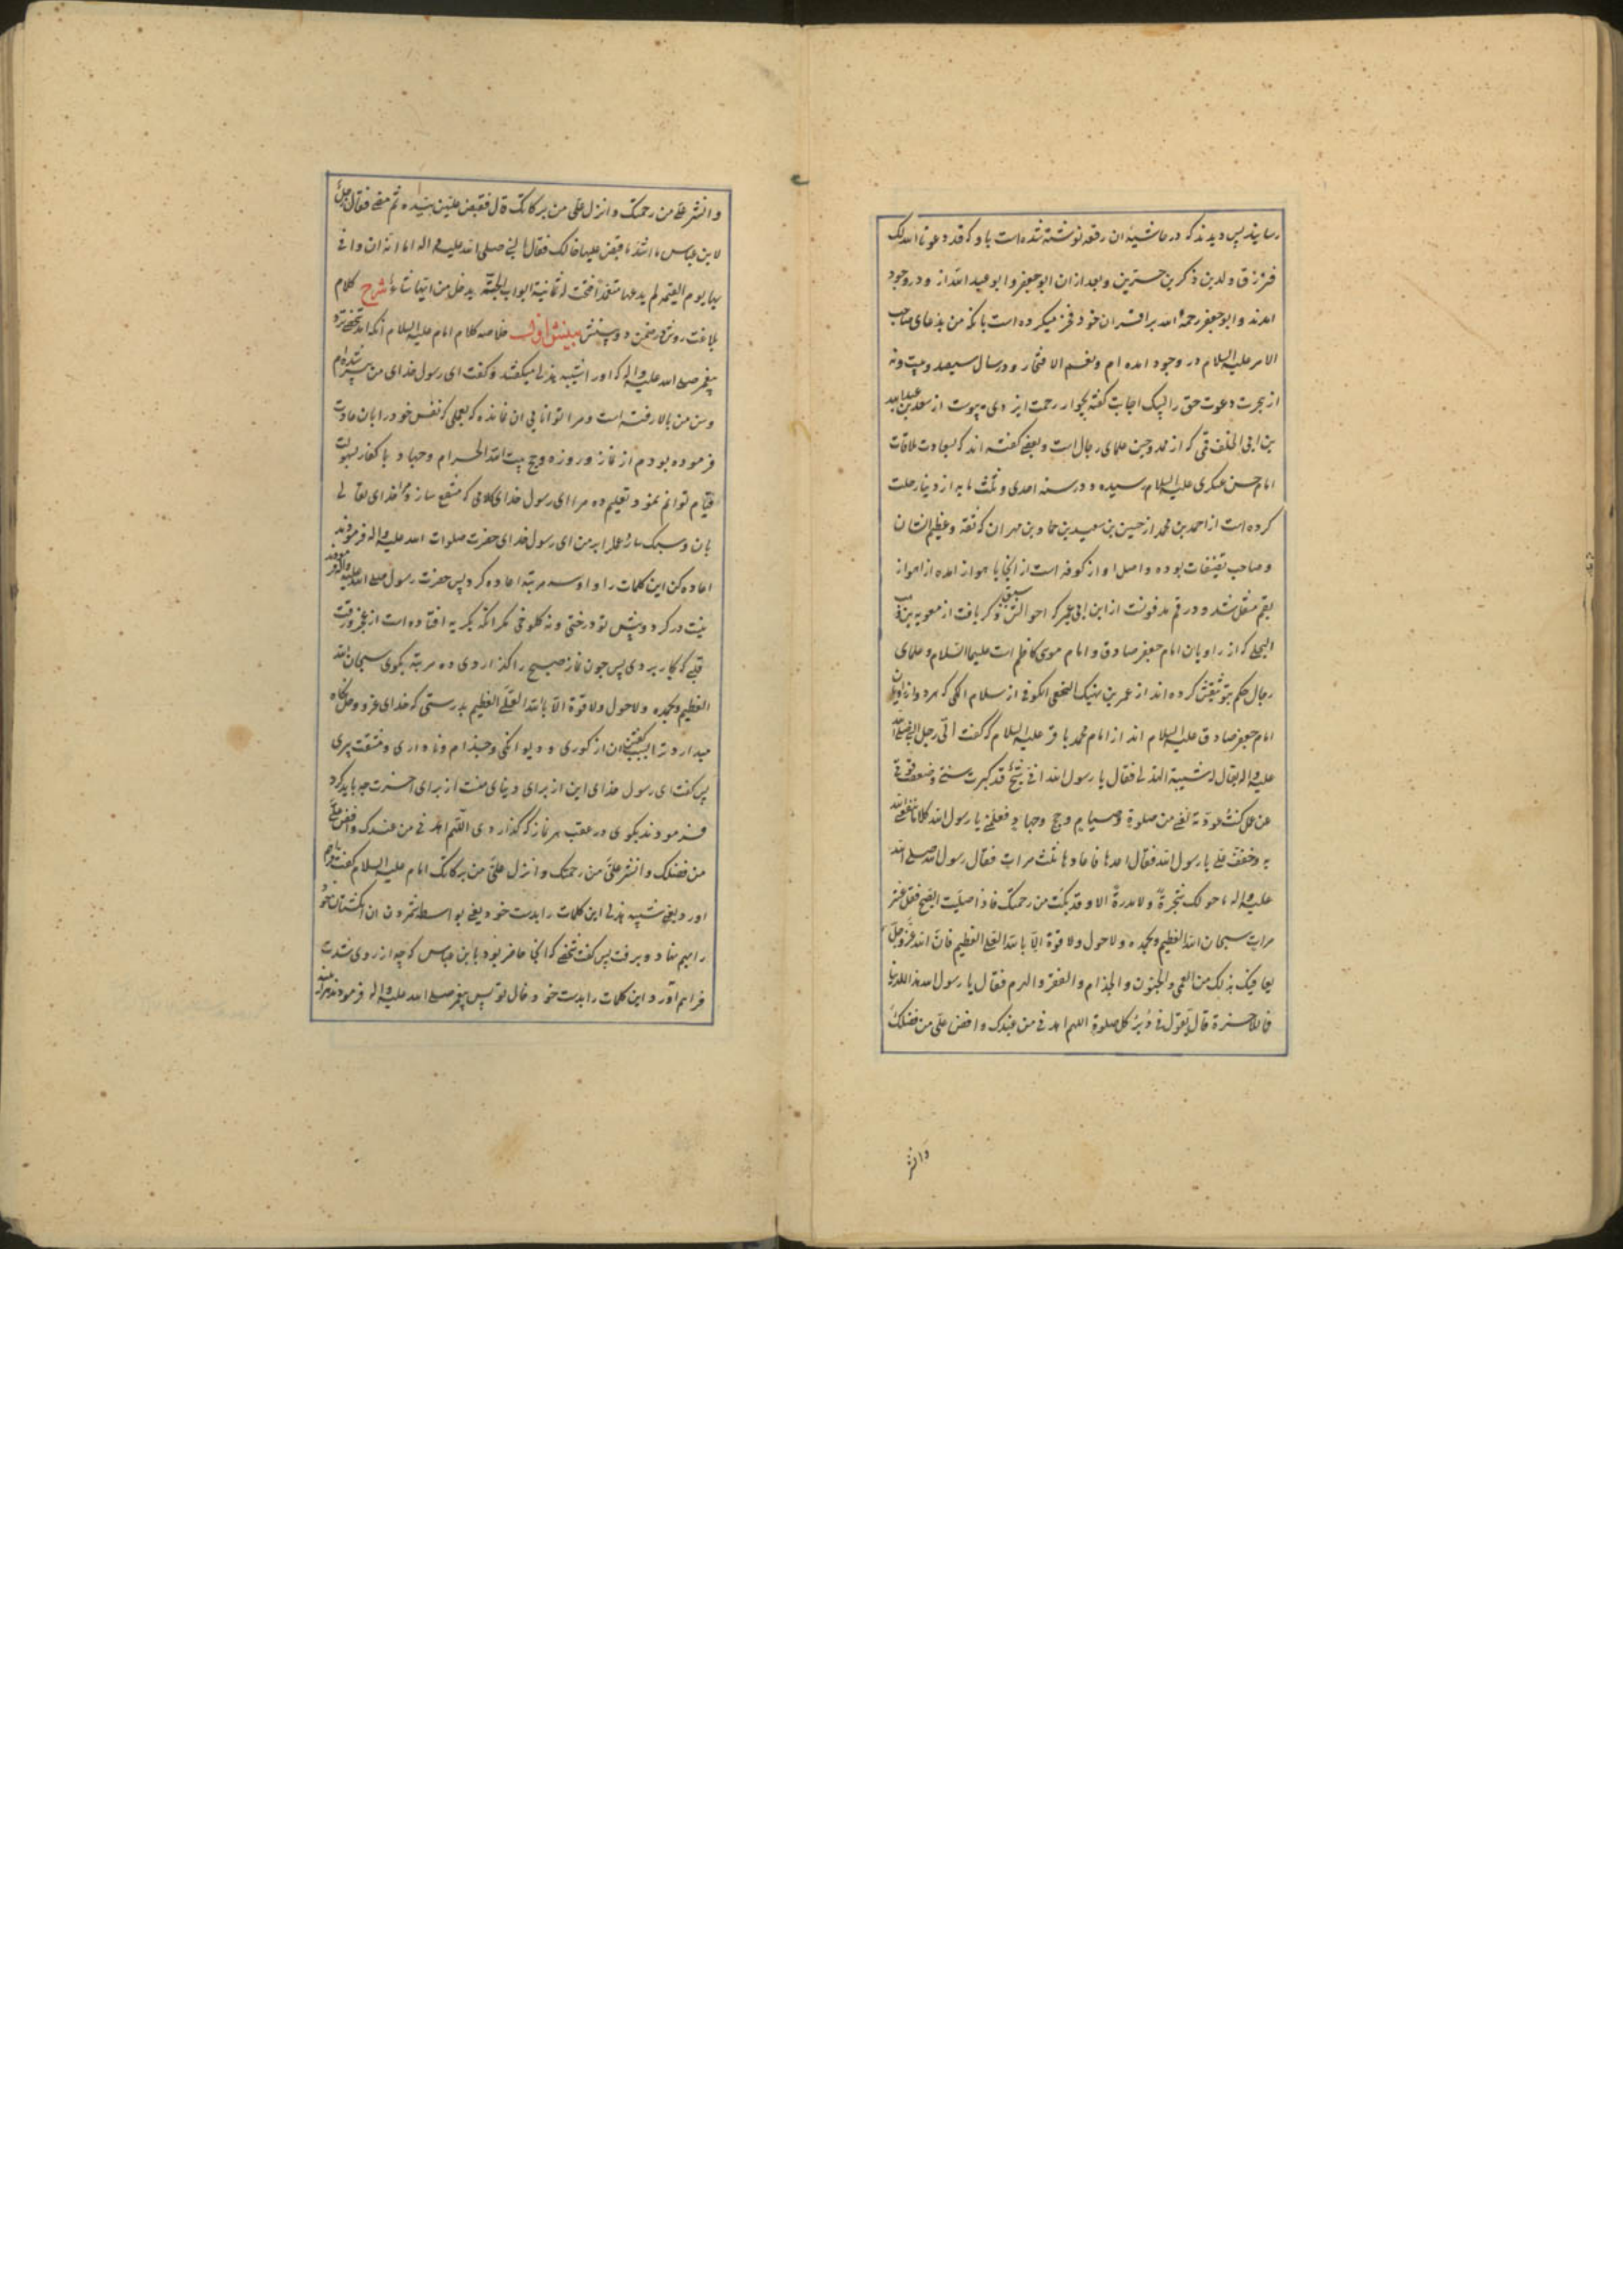 رسانید پس دیدند که در حاشیهٔ ان رقعه نوشته شده است باو که قد دعونا الله لک
فترزق ولدین ذکرین خیرین و بعد از ان ابو جعفر و ابو عبد الله از و در وجود
امدند و ابو جعفر رحمه الله بر اقران خود فخر میکرده است بانکه من بدعای صاحب
الامر علیه السلام در وجود امده ام و نعم الافتخار و در سال سیصد و بیست و نه
از هجرت دعوت حق را لبیک اجابت گفته بجوار رحمت ایزدی پیوست از سعد بن عبد الله
بن ابی الخلف قمی که از ممدوحین علمای رجال است و بعضی گفته اند که بسعادت ملاقات
امام حسن عسکری علیه السلام رسیده و در سنه احدی و ثلث مایه از دنیا رحلت
کرده است از احمد بن محمد از حسین بن سعید بن حماد بن مهران که ثقه و عظیم الشان
و صاحب تصنیفات بوده و اصل او از کوفه است از انجا باهواز امده از اهواز
بقم منتقل شد و در قم مدفونست از ابن ابی عمیر که احوالش سبق ذکر یافت از معویه بن وهب
البجلی که از راویان امام جعفر صادق و امام موسی کاظم است علیهما السلام و علمای
رجال حکم بتوثیقش کرده اند از عمر بن نهیک النخعی الکوفی از سلام المکی که هر دو از راویان
امام جعفر صادق علیه السلام اند از امام محمد باقر علیه السلام که گفت اتی رجل النبی صلی الله
علیه و اله یقال له شیبة الهذلی فقال یا رسول الله انی شیخ قد کبرت سنی و ضعفت قوتی
عن عمل کنت عودته نفسی من صلوة و صیام و حج و جهاد فعلمنی یا رسول الله کلاما ینفعنی الله
به و خفف علی یا رسول الله فقال اعدها فاعادها ثلث مرات فقال رسول الله صلی الله
علیه و اله ما حولک شجرة ولا مدرة الا و قد بکت من رحمتک فاذا صلیت الصبح فقل عشر
مرات سبحان الله العظیم و بحمده ولا حول ولا قوة الا بالله العلی العظیم فان الله عز و جل
یعافیک بذلک من العمی و الجنون و الجذام و الفقر و الهرم فقال یا رسول الله هذا للدنیا
فما للاخرة قال تقول فی دبر کل صلوة اللهم اهدنی من عندک و افض علی من فضلک
وانشر
وانشر علی من رحمتک و انزل علی من برکاتک قال فقبض علیهن بیده ثم مضی فقال رجل
لابن عباس ما اشد ما قبض علیها خالک فقال النبی صلی الله علیه و اله اما انه ان وافی
بها یوم القیمه لم یدعها متعمدا فتحت له ثمانیة ابواب الجنة یدخل من ایها شاء شرح کلام
بلاغت روش در ضمن دو بینش بینش اول خلاصه کلام امام علیه السلام انکه امد شخصی نزد
پیغمبر صلی الله علیه و اله که او را شیبه هذلی میگفتند و گفت ای رسول خدای من پیر شده ام
و سن من بالا رفته است و مرا توانایی ان نمانده که بعملی که نفس خود را بان عادت
فرموده بودم از نماز و روزه و حج بیت الله الحرام و جهاد با کفار بسهولت
قیام توانم نمود تعلیم ده مرا ای رسول خدای کلامی که منتفع سازد مرا خدای تعالی
بان و سبک ساز عمل را بر من ای رسول خدای حضرت صلوات الله علیه و اله فرمودند
اعاده کن این کلمات را و او سه مرتبه اعاده کرد پس حضرت رسول صلی الله علیه و اله فرمودند
نیست در گرد و پیش تو درختی و نه کلوخی مگر انکه بگریه افتاده است از عجز و رقت
قلبی که بکار بردی پس چون نماز صبح را گذاردی ده مرتبه بگوی سبحان الله
العظیم و بحمده ولا حول ولا قوة الا بالله العلی العظیم بدرستی که خدای عز و جل نگاه
میدارد ترا بسبب گفتن ان از کوری و دیوانگی و جذام و ناداری و مشقت پیری
پس گفت ای رسول خدای این از برای دنیای منست از برای اخرت چه باید کرد
فرمودند بگوی در عقب هر نماز که گذاردی اللهم اهدنی من عندک و افض علی
من فضلک و انشر علی من رحمتک و انزل علی من برکاتک امام علیه السلام گفت فراهم
اورد یعنی شیبه هذلی این کلمات را بدست خود یعنی بواسطه شمردن ان انگشتان خود
را بهم نهاد و برفت پس گفت شخصی که انجا حاضر بود بابن عباس که چه از روی شدت
فراهم آورد این کلمات را بدست خود خال تو پس پیغمبر صلی الله علیه و اله فرمودند